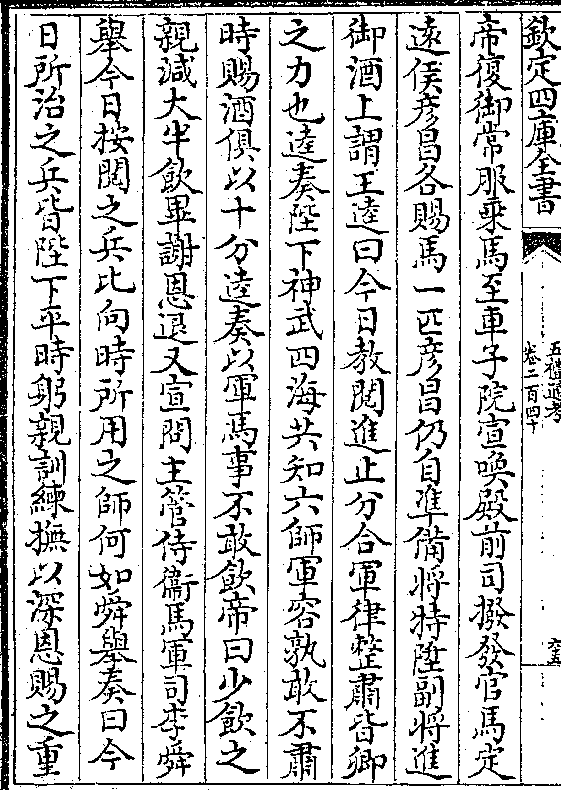 欽定四庫全書
五禮通考
卷二百四十
六五
帝復御常服乗馬至車子院宣喚殿前司撥發官馬定
遠侯彦昌各賜馬一匹彦昌仍自凖備將特陞副將進
御酒上謂王逵曰今日教閲進止分合軍律整肅皆卿
之力也逵奏陛下神武四海共知六師軍容孰敢不肅
時賜酒俱以十分逵奏以軍馬事不敢飲帝曰少飲之
親減大半飲畢謝恩退又宣問主管侍衞馬軍司李舜
舉今日按閲之兵比向時所用之師何如舜舉奏曰今
日所治之兵皆陛下平時躬親訓練撫以深恩賜之重